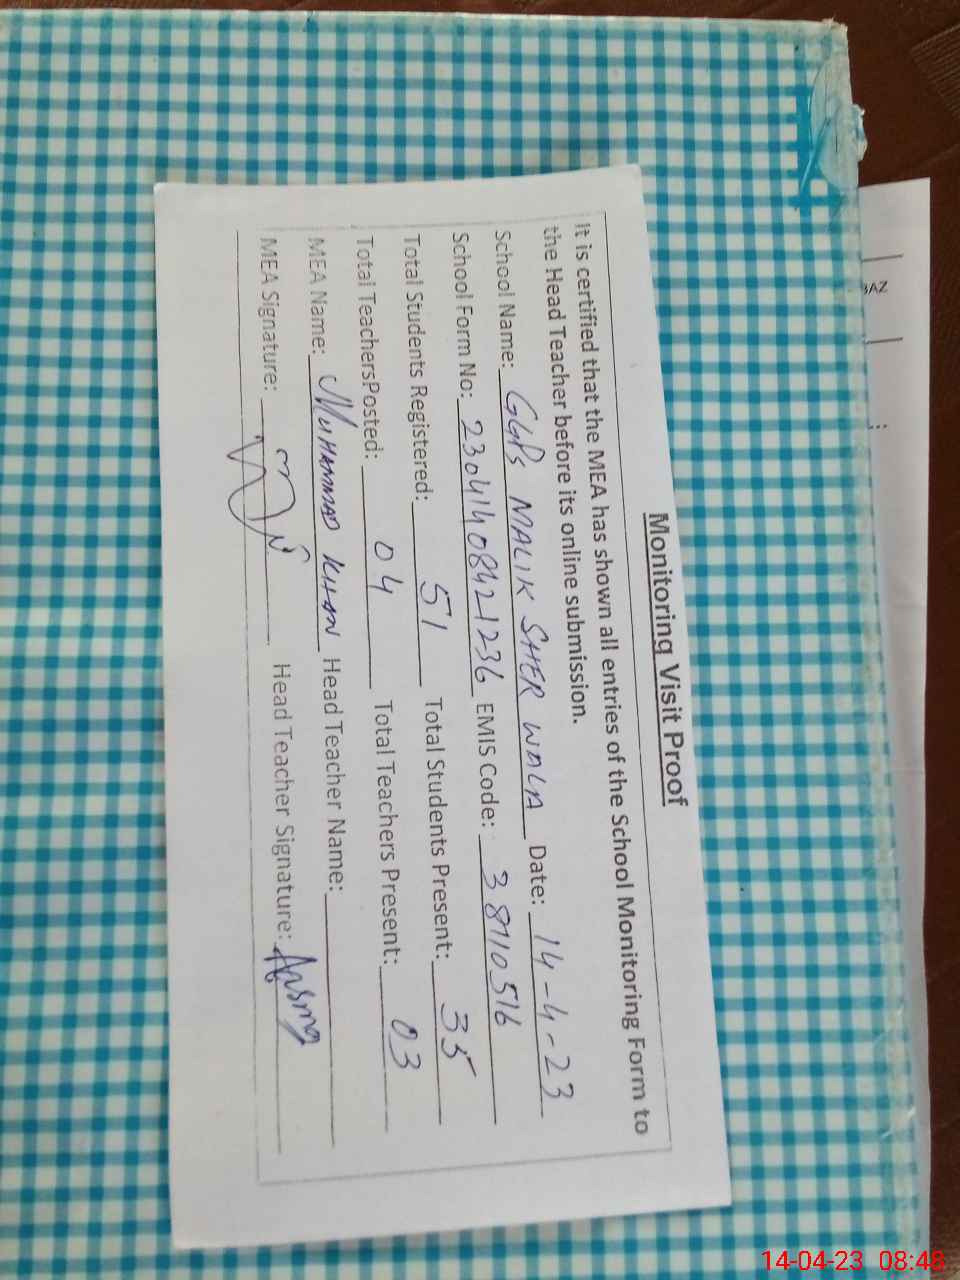 Monitoring Visit Proof
It is certified that the MEA has shown all entries of the School Monitoring Form to
the Head Teacher before its online submission.
School Name: GGPS MALIK SHER WALA Date: 14-4-23
School Form No: 23041408421236 EMIS Code: 38110516
Total Students Registered: 51 Total Students Present: 35
Total TeachersPosted: 04 Total Teachers Present: 03
MEA Name: MUHAMMAD KHAN Head Teacher Name:
MEA Signature: Head Teacher Signature: Aasma
BAZ
14-04-23 08:48